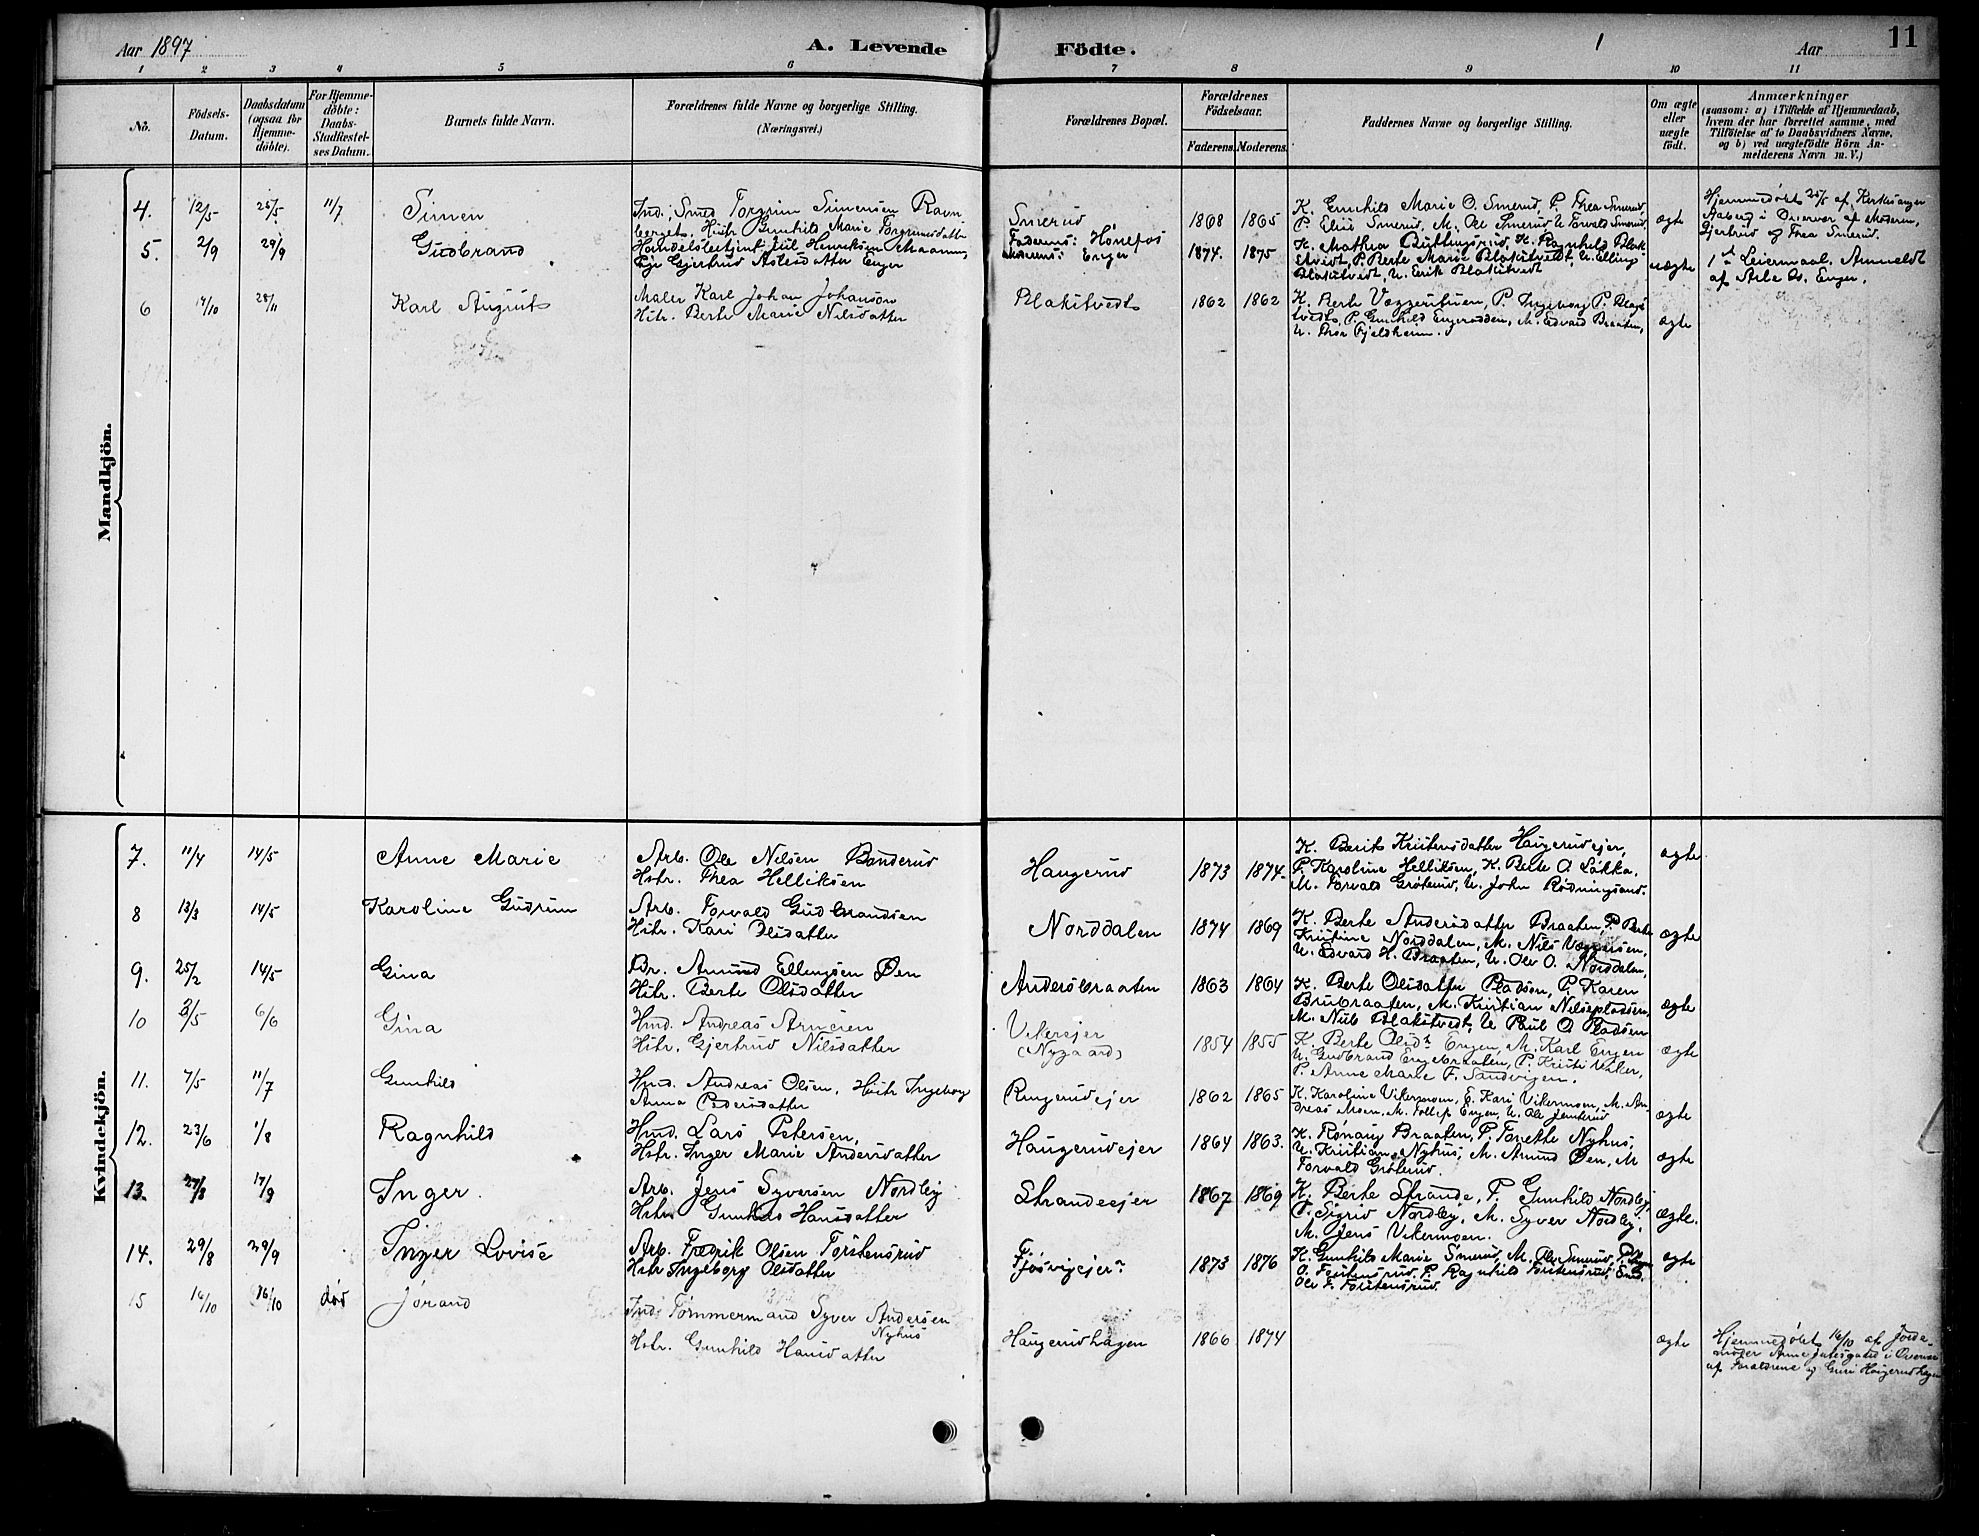 Aar 1897
A. Levende
Födte.
1
Aar
11
1 2 3 4 5 6 7 8 9 10 11
No.
Födsels-
Datum.
Daabsdatum
(ogsaa for
Hjemme-
döbte).
For Hjemme-
döbte:
Daabs-
Stadfæstel-
ses Datum.
Barnets fulde Navn.
Forældrenes fulde Navne og borgerlige Stilling.
(Næringsvei.)
Forældrenes Bopæl.
Forældrenes
Födselsaar.
Faderens. Moderens.
Faddernes Navne og borgerlige Stilling.
Om ægte
eller
uægte
født.
Anmærkninger
(saasom: a) i Tilfælde af Hjemmedaab,
hvem der har forrettet samme, med
Tilföielse af to Daabsvidners Navne,
og b) ved uægtefödte Börn An-
melderens Navn m. V.)
Mandkjön.
4. 12/5 25/5 11/7 Simen
Ind., Smed Torgrim Simensen Ravn
bergets, Hustr. Gunhild Marie Torgrimsdatter
Smerud
1868 1865
K. Gunhild Marie O. Smerud, P. Thea Smerud
P. Elise Smerud, M. Ole Smerud U. Torvald Smerud,
ægte
Hjemmedøbt 25/5 af Kirkesanger
Aaberg i Overvær af Moderen,
Gjertrud og Thea Smerud.
5. 2/9 29/9 Gudbrand
Handelsbetjent Jul Henriksen
Pige Gjertrud Aslesdatter Enger
Faderens: Hönefos
Moderens: Enger
1874. 1875
K. Mathea Ragnhild Blak-
stvedt, P. Berte Marie Blakstvedt, U. Elling
Blakstvedt, U. Erik Blakstvedt
uægte
1ste Leiermaal. Anmeldt
af Asle O. Enger.
6 14/10 28/11 Karl August
Maler Karl Johan Johanson
Hstr. Berte Marie Nilsdatter
Blakstvedt
1862 1862
K. Berte Væggerstuen, P. Ingeborg P. Blaks
tvedt, P. Gunhild Engerodden, M. Edvard Braaten,
U. Thea Fjeldheim.
ægte
Kvindekjön.
7. 11/4 14/5 Anne Marie
Arb. Ole Nilsen Bonderud
Hstr. Thea Helliksen
Haugerud
1873 1874.
K. Berit Kristensdatter Haugerudejer,
P. Karoline Helliksen, K. Berte O. Løkka,
M. Torvald Grøterud, U. John Rødningsand.
ægte
8 13/3 14/5 Karoline Gudrun
Arb. Torvald Gudbrandsen
Hstr. Kari Olsdatter
Norddalen
1874 1869
K. Berte Andersdatter Braaten, P. Berte
Kristine Norddalen, M. Nils
U. Edvard H. Braaten, U. Ole O. Norddalen,
ægte
9. 25/2 14/5 Gina
Br. Amund Ellingsen Øen
Hstr. Berte Olsdatter
Andersbraaten
1863 1864
K. Berte Olsdatter Pladsen, P. Karen
Brubraaten, M. Kristian Nilspladsen,
M. Nils Blakstvedt, U. Paul O. Pladsen
ægte
10 3/5 6/6 Gina
Hmd. Andreas Arnesen
Hstr. Gjertrud Nilsdatter
Vikerejer
(Nygaard)
1854 1855
K. Berte Olsdr Engen, M. Karl Engen
U. Gudbrand Engebraaten, P. Kristi Viker,
P. Anne Marie F. Sandvigen.
ægte
11. 7/5 11/7 Gunhild
Hmd. Andreas Olsen, Hustr Ingeborg
Anna Pedersdatter
Ringerudejer
1862 1865
K. Karoline Vikermoen, P. Kari Vikermoen, M. An-
dreas Moen, M. Tollef Engen, U. Ole
ægte
12. 23/6 1/8 Ragnhild
Hmd. Lars Petersen,
Hstr. Inger Marie Andersdatter
Haugerudejer
1864 1863.
K. Rønaug Braaten, P. Tonette Nyhus,
U. Kristian Nyhus, M. Amund Øen, M
Torvald Grøterud.
ægte
13. 27/8 17/9 Inger.
Arb. Jens Syversen Nordby
Hstr Gunhild Hansdatter
Strandeejer
1867 1869
K. Berte Strande, P. Gunhild Nordby,
P. Sigrid Nordby, M. Syver Nordby,
M. Jens Vikermoen.
ægte.
14. 29/8 29/9 Inger Lovise
Arb. Fredrik Olsen Torstensrud
Hstr Ingeborg Olsdatter
Fjøsvigejer
1873 1876
K. Gunhild Marie Smerud, M. Ole Smerud,
O. Torstensrud, P. Ragnhild Torstensrud,
Ole F. Torstensrud.
ægte
15 16/10 16/10 død Jørand
Ind. Tømmermand Syver Andersen
Nyhus
Hstr. Gunhild Hansdatter
Haugerudhagen
1866 1874
ægte
Hjemmedøbt 16/10 af Jorde
moder Anne i Overvær
af Forældrene og Guri Haugerudhagen